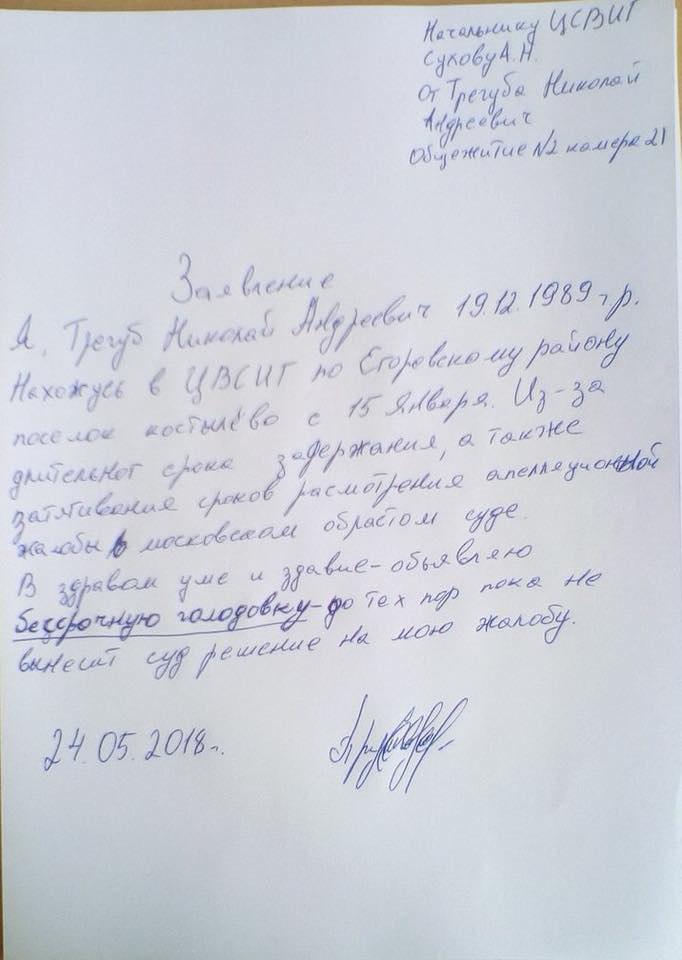 Начальнику ЦСВИГ
Сухову А.Н.
От Трегуба Николай
Андреевич
Общежитие №2 камера 21
Заявление
Я, Трегуб Николай Андреевич 19.12.1989 г.р.
Нахожусь в ЦВСИГ по Егоровскому району
поселок костылёво с 15 Января. Из-за
длительног срока задержания, а также
затягивания сроков расмотрения апелляционной
жалобы в московском обрастом суде.
В здравом уме и здавие - обьявляю
бессрочную голодовку - до тех пор пока не
вынесит суд решение на мою жалобу.
24.05.2018 г.